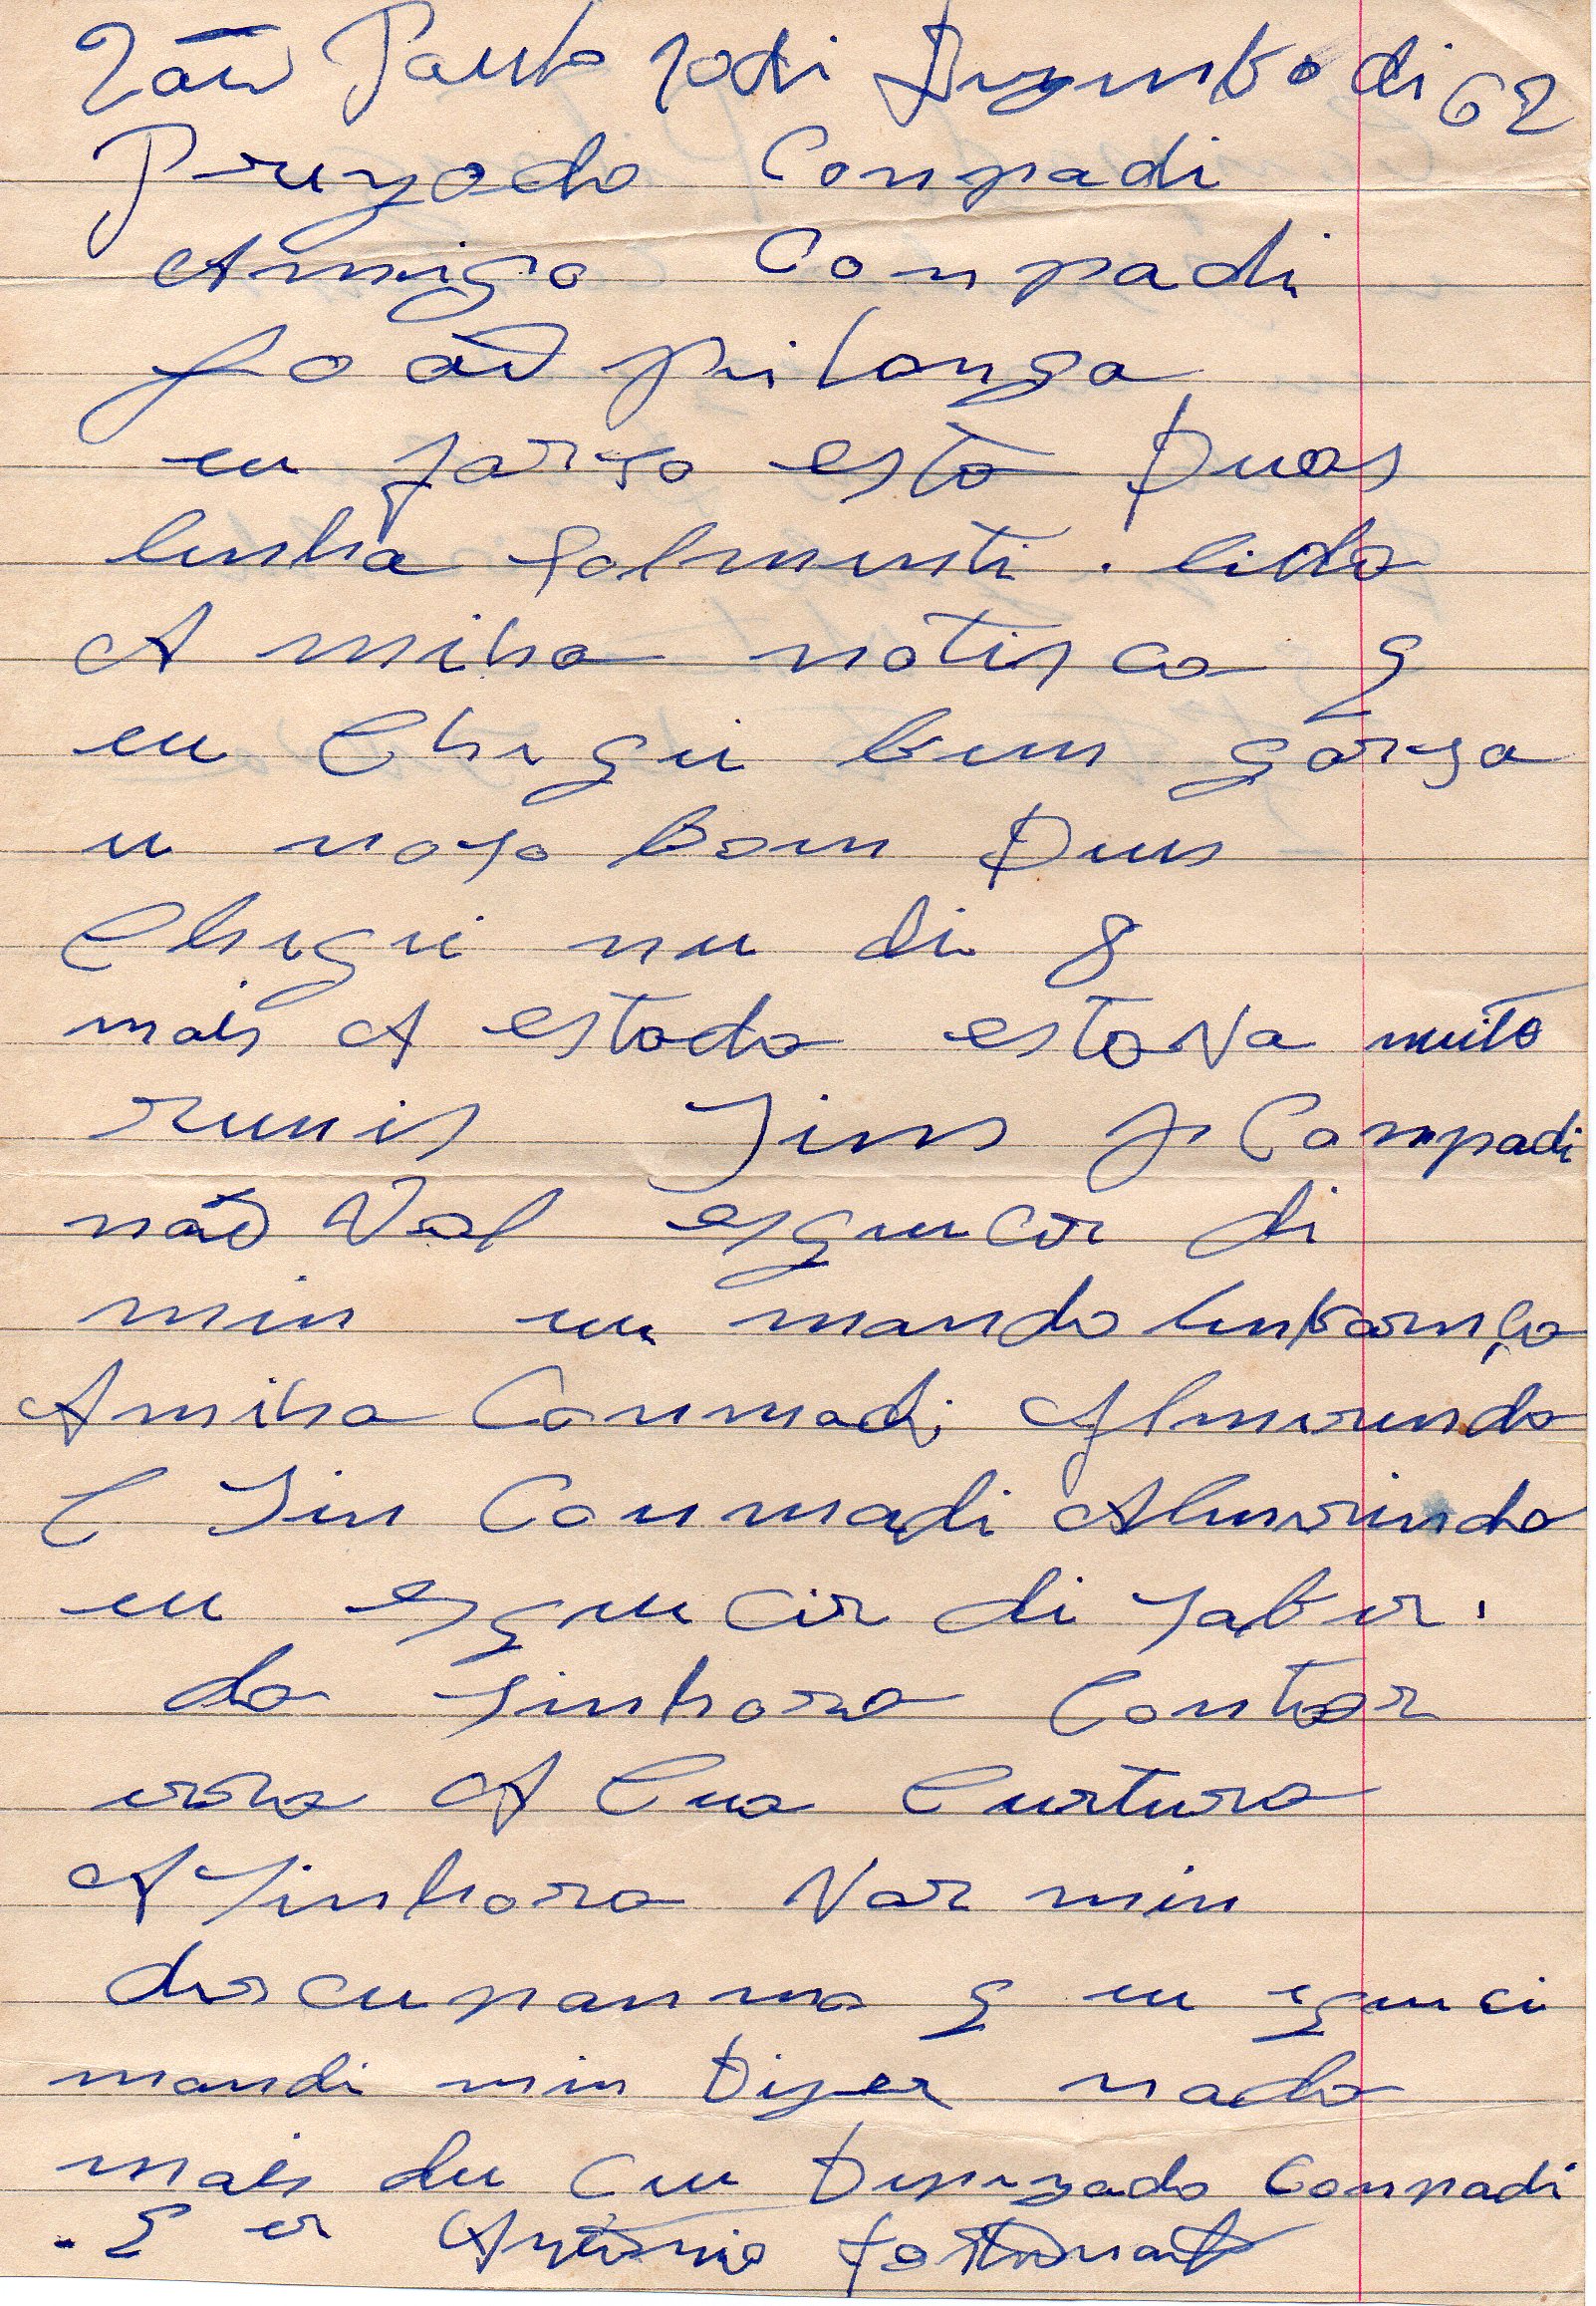 São Paulo 10 di Dezenbro di 62
Prezado Conpadi
Amigo Conpadi
João pitanga
eu faso esta Duas
linha Solmenti . lida
A miha notisca q
eu Chegei bem garsa
u noso bom Deus
Chegei nu di 8
mais A estada estava muito
ruuis Sins Je Compadi
não Val esquecer di
min eu mando lenbarnça
Amiha Conmadi Almerinda
E Sin Conmadi Almerinda
eu esquecir di saber .
da Sinhora Contar
era A Cua Curtura
A Sinhora Var min
dercupanno q eu equeci
mandi min Dizer nada
mais du Ceu Deprezado Conpadi
. Q er Antonio fortunato